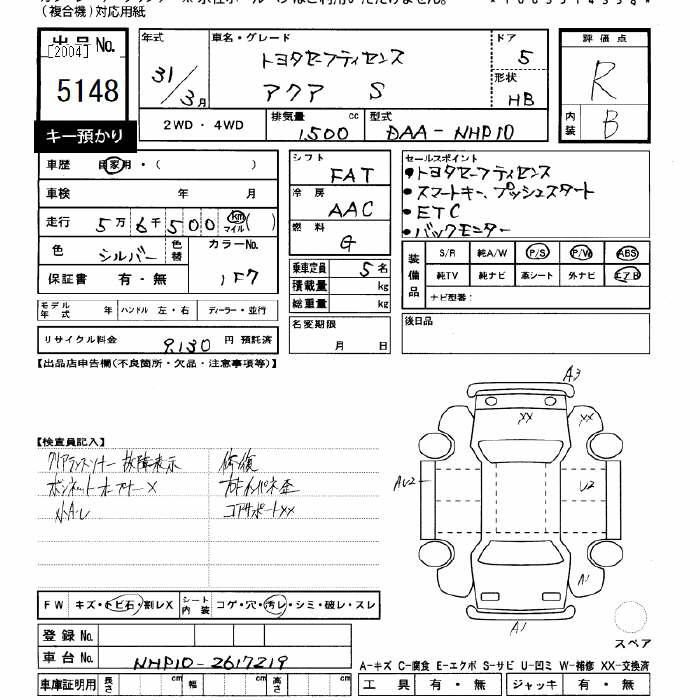 (複合機)対応用紙
出品No.
[2004]
5148
キー預かり
年式
31/3月
車名・グレード
トヨタセーフティセンス
アクア S
ドア
5
形状
HB
評価点
R
内装
B
2WD・4WD
排気量 cc
1500
型式
DAA-NHP10
車歴 自家用・( )
車検 年 月
走行 5万6千500 km マイル( )
色 シルバー 色替 カラーNo.
1F7
保証書 有・無
モデル年式 年 ハンドル 左・右 ディーラー・並行
リサイクル料金 9,130 円 預託済
シフト
FAT
冷房
AAC
燃料
G
乗車定員 5名
積載量 kg
総重量 kg
名変期限
月 日
セールスポイント
・トヨタセーフティセンス
・スマートキー、プッシュスタート
・ETC
・バックモニター
装備品
S/R 純A/W P/S P/W ABS
純TV 純ナビ 革シート 外ナビ エアB
ナビ型番:
後日品
【出品店申告欄(不良箇所・欠品・注意事項等)】
【検査員記入】
クリアランスソナー故障表示
ボンネットオープナーX
小A・U
修復
コアサポートXX
A3
XX
AU2
U2
A1
A1
スペア
FW キズ・トビ石・割レX シート内装 コゲ・穴・汚レ・シミ・破レ・スレ
登録No.
車台No. NHP10-2617219
車庫証明用 長さ cm 幅 cm 高さ cm
A-キズ C-腐食 E-エクボ S-サビ U-凹ミ W-補修 XX-交換済
工具 有・無 ジャッキ 有・無